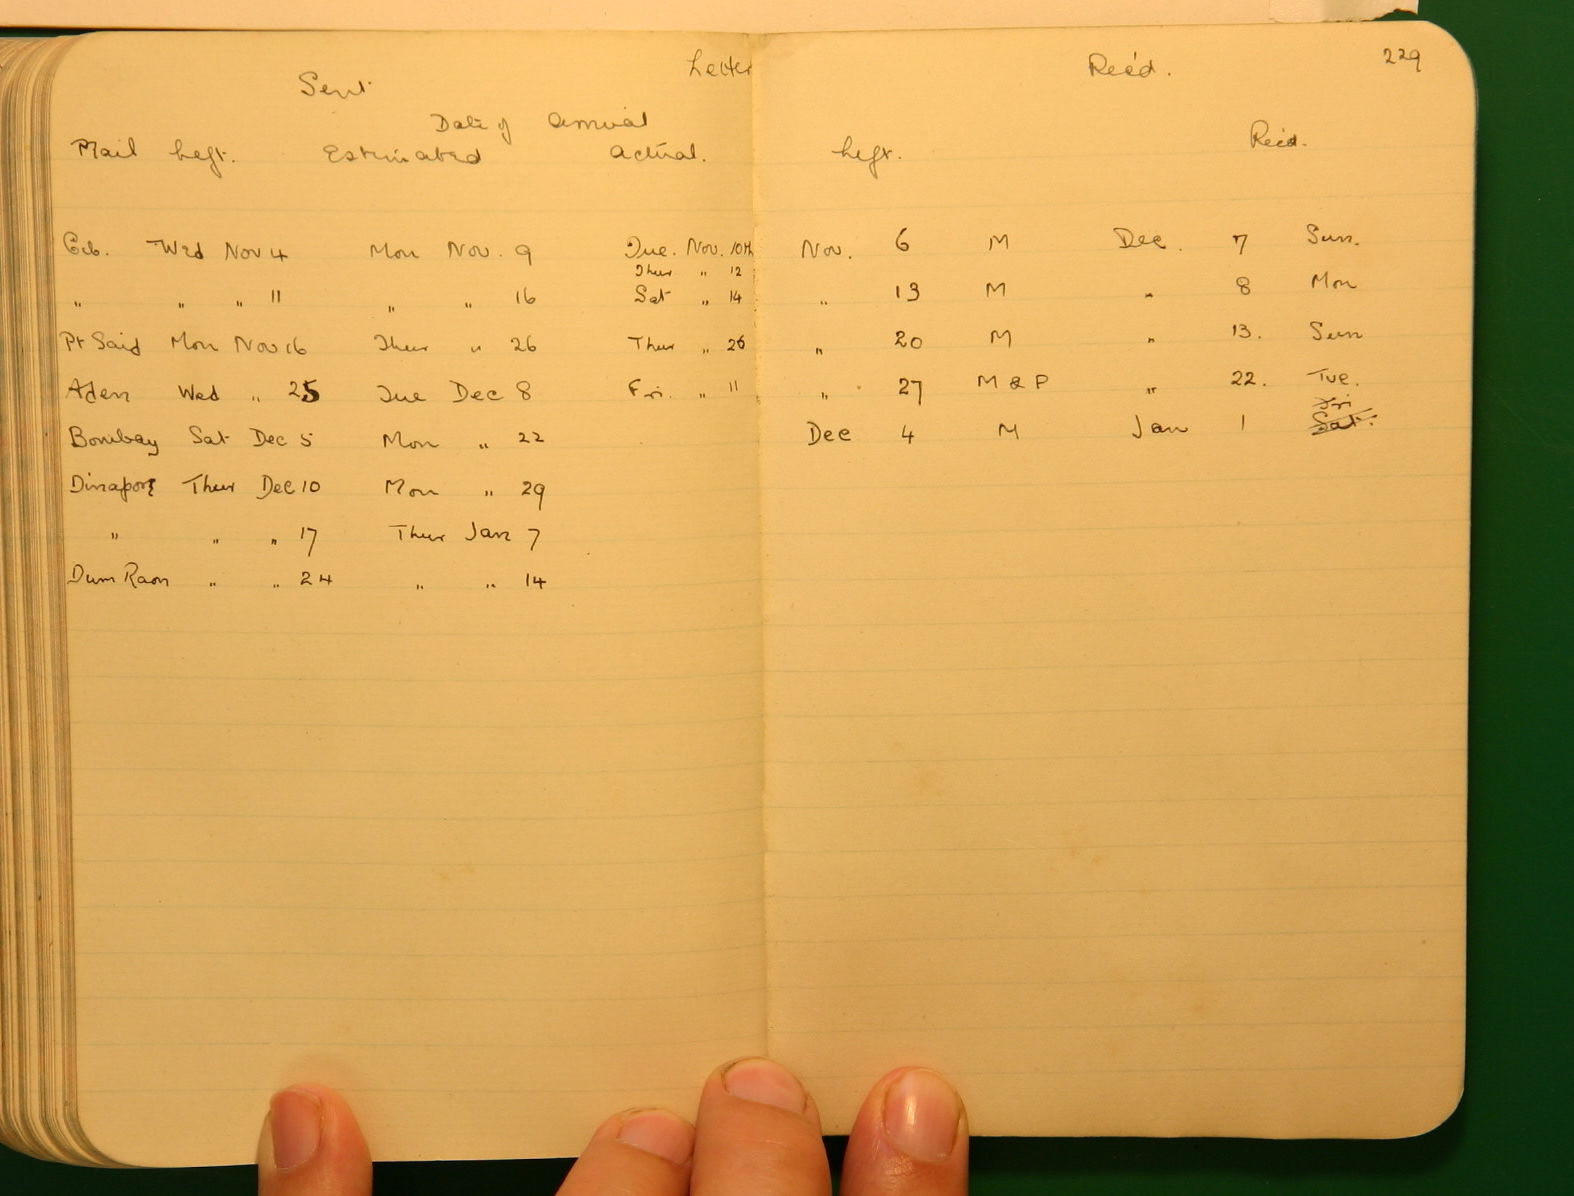 Letter
Sent
Date of Arrival
Mail Left. Estimated Actual.
Gib. Wed Nov 4 Mon Nov. 9 Tue. Nov. 10th
Thur " 12
" " " 11 " " 16 Sat " 14
Pt Said Mon Nov 16 Thur " 26 Thur " 26
Aden Wed " 25 Tue Dec 8 Fri. " 11
Bombay Sat Dec 5 Mon " 22
Dinapore Thur Dec 10 Mon " 29
" " " 17 Thur Jan 7
Dum Raon " " 24 " " 14
Rec'd. 229
Left. Rec'd.
Nov. 6 M Dec. 7 Sun.
" 13 M " 8 Mon
" 20 M " 13. Sun
" 27 M & P " 22. Tue.
Fri
Dec 4 M Jan 1 Sat.